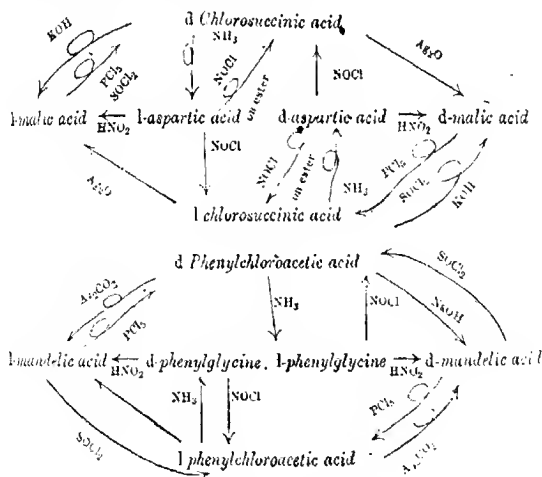 d Chlorosuccinic acid
KOH
NH3
PCl5
SOCl2
NOCl
on ester
NOCl
Ag2O
l-malic acid
HNO2
l-aspartic acid
d-aspartic acid
HNO2
d-malic acid
Ag2O
NOCl
NOCl
on ester
NH3
PCl5
SOCl2
KOH
l chlorosuccinic acid
d Phenylchloroacetic acid
SOCl2
Ag2CO2
PCl5
NH3
NOCl
NaOH
l-mandelic acid
HNO2
d-phenylglycine.
l-phenylglycine
HNO2
d-mandelic acid
SOCl2
NH3
NOCl
PCl5
Ag2CO2
l phenylchloroacetic acid